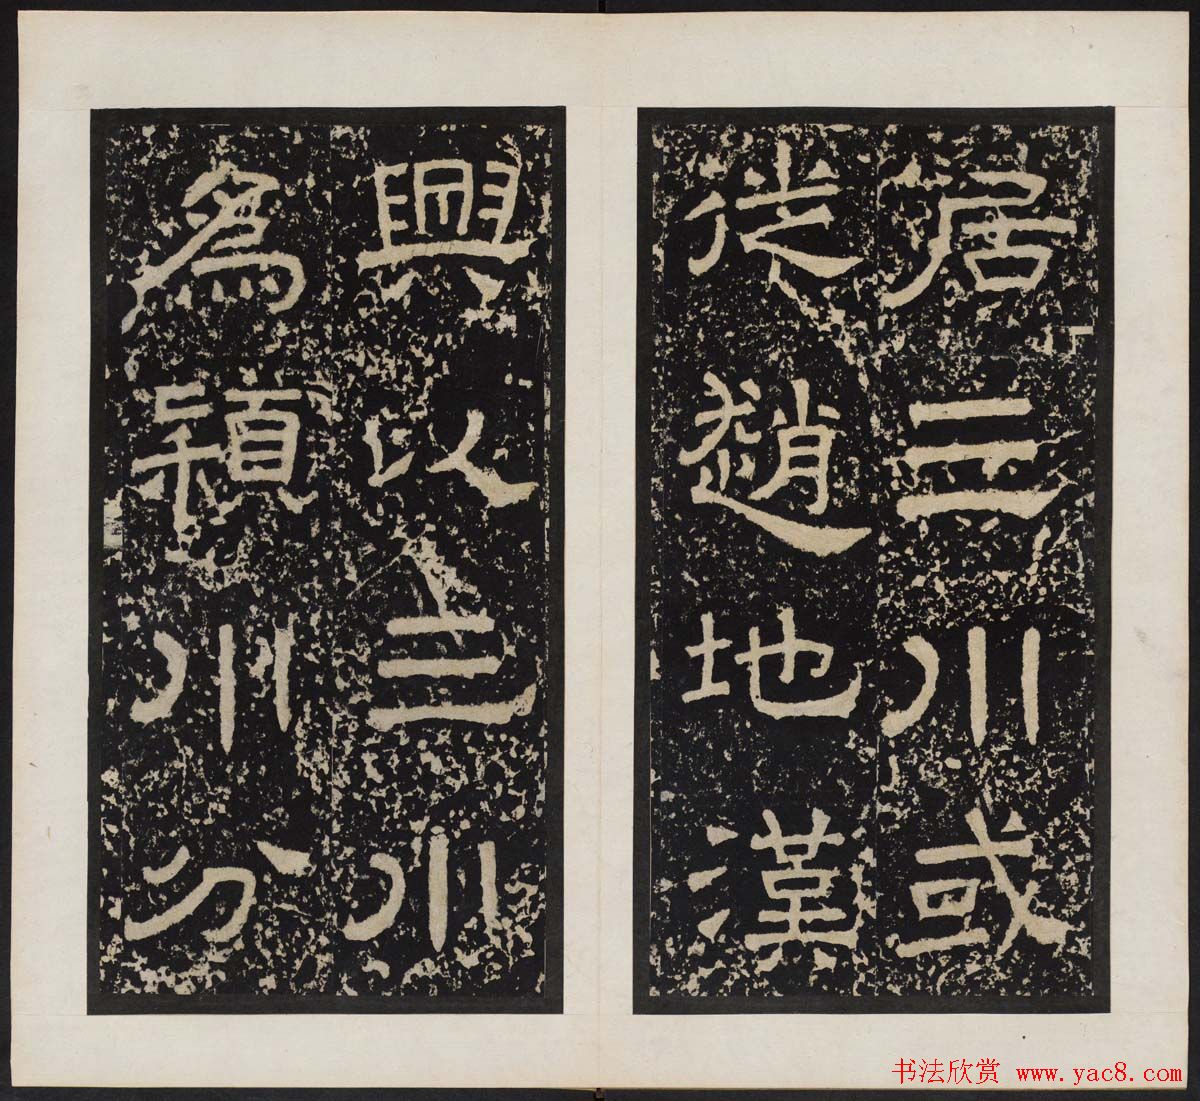 居三川或
徙趙地漢
興以三川
為潁川分
书法欣赏 www.yac8.com